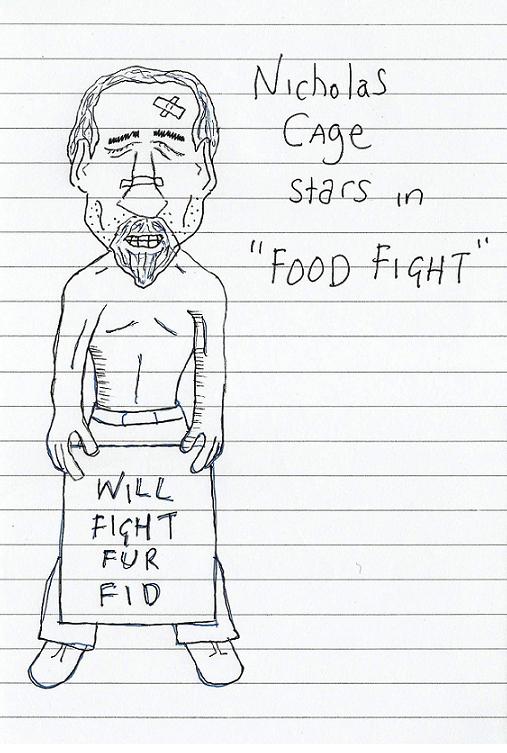 Nicholas
Cage
stars in
"FOOD FIGHT"
WILL
FIGHT
FUR
FID